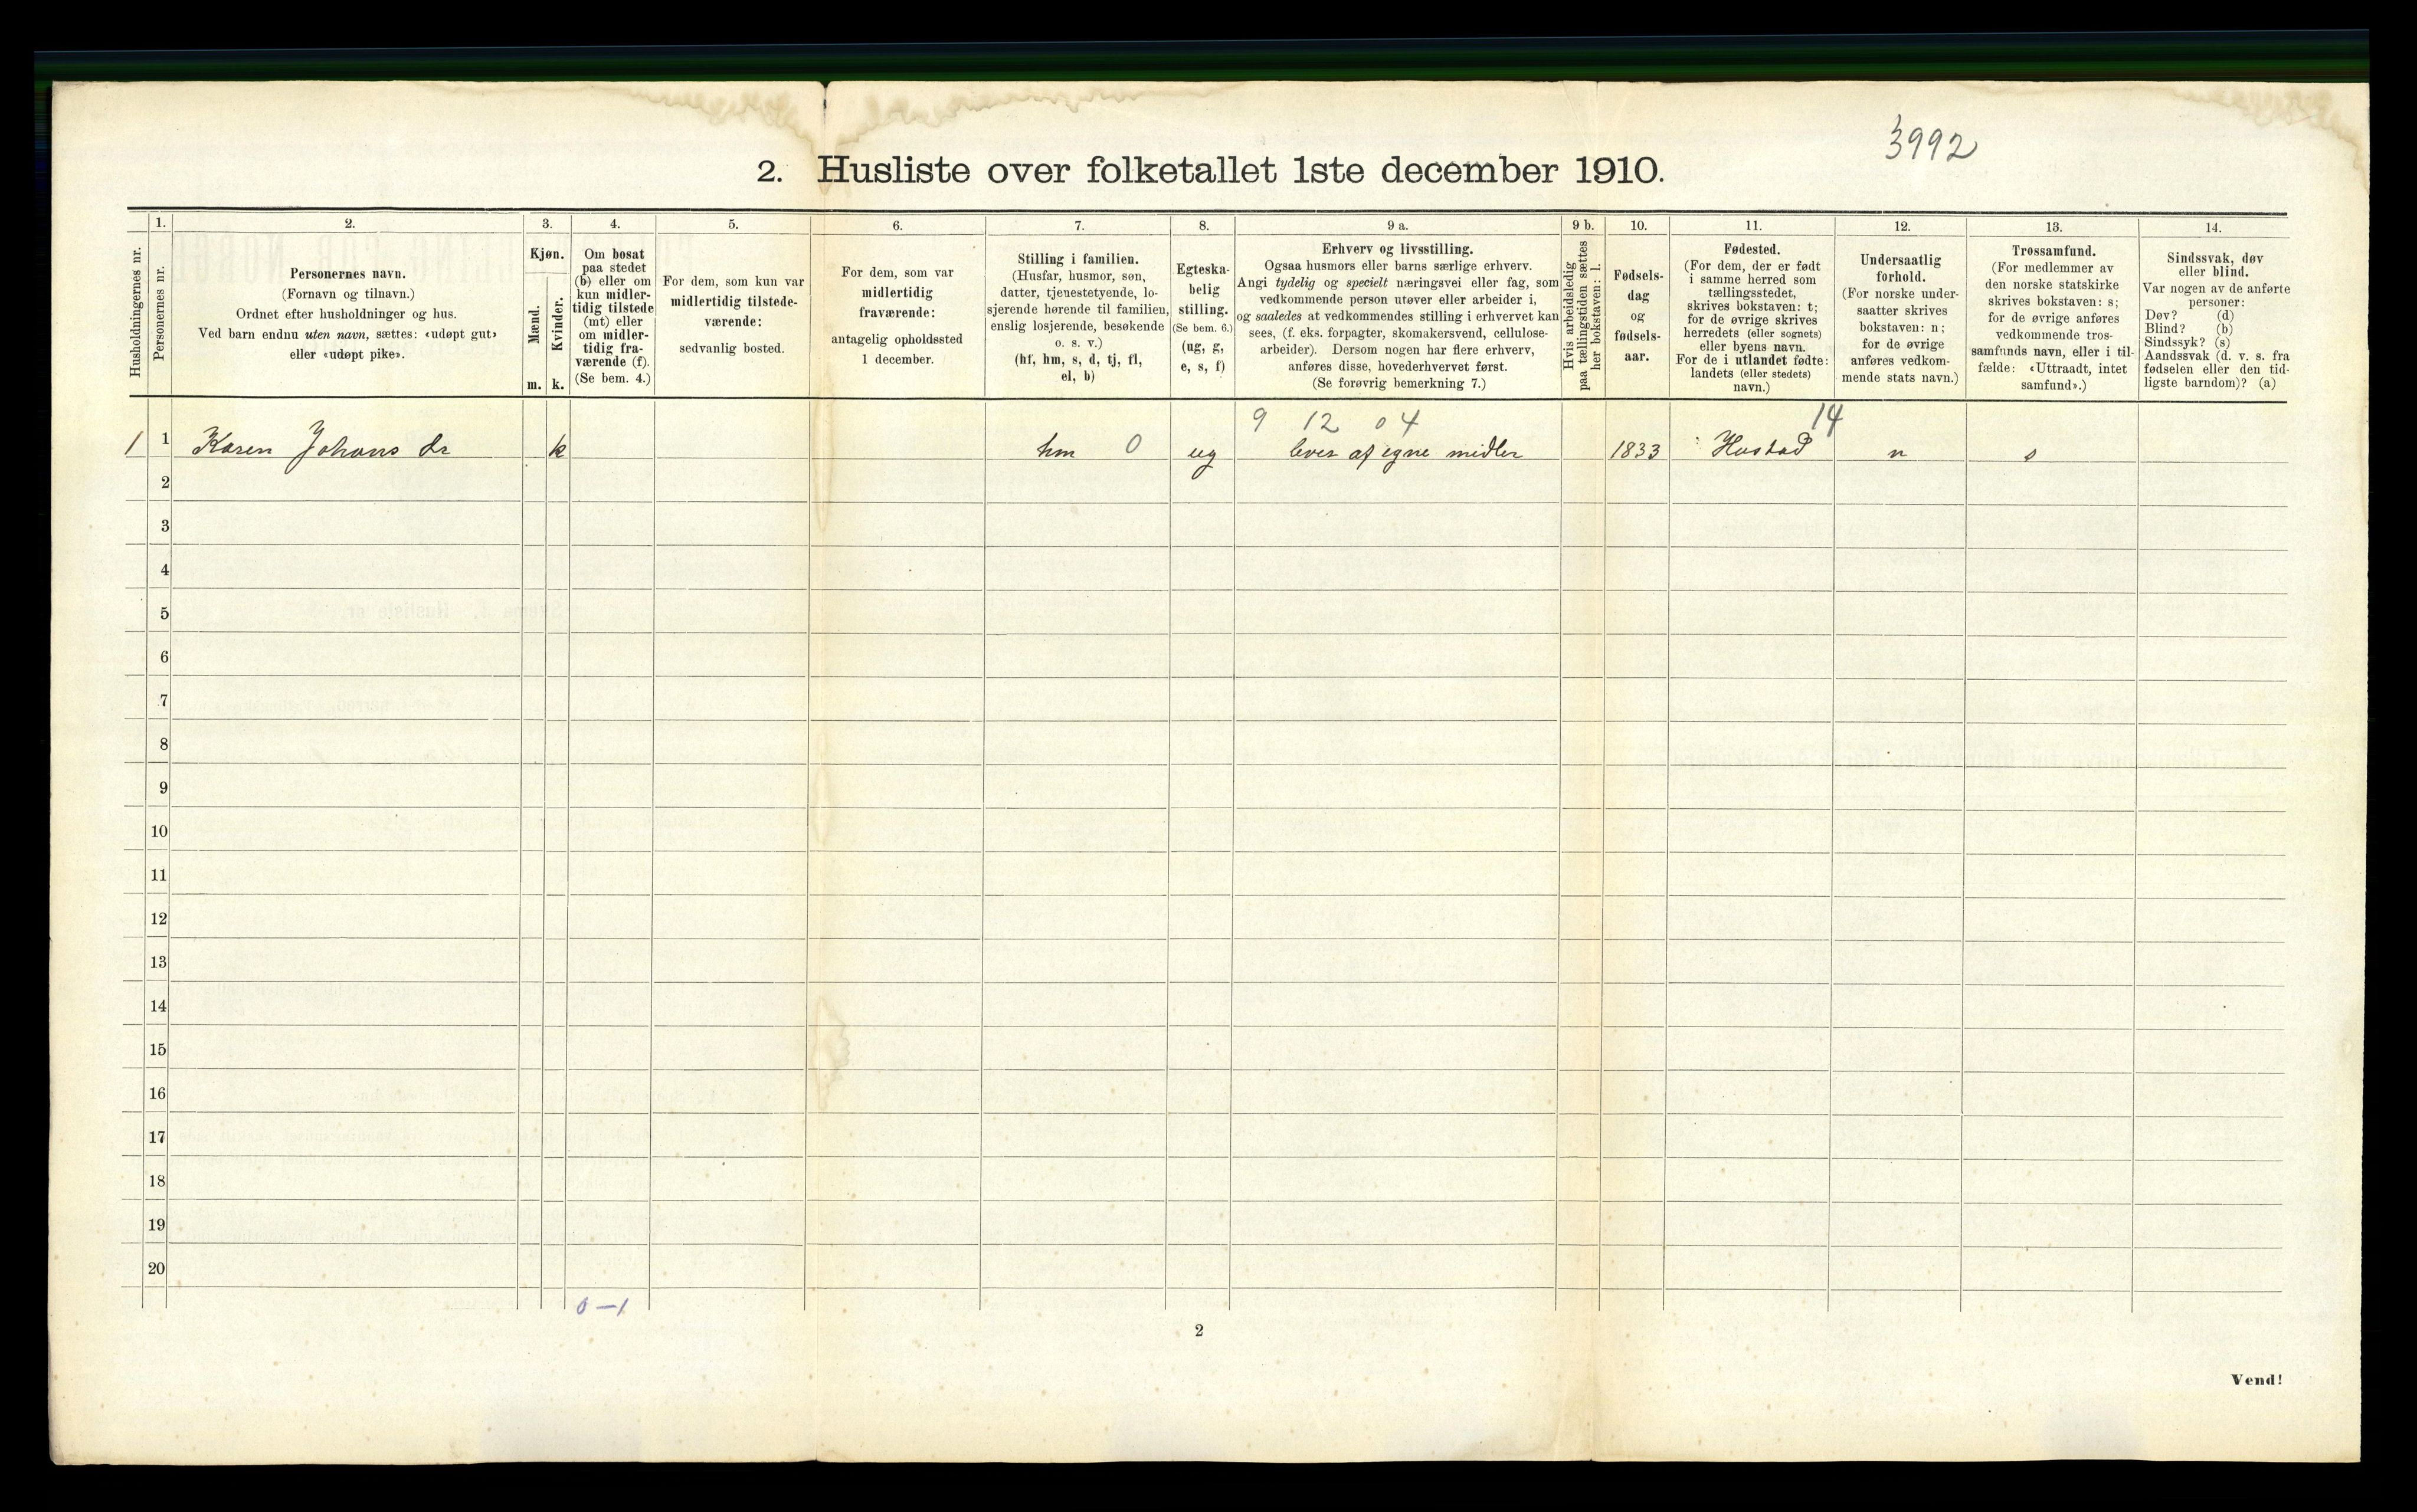 3992
2. Husliste over folketallet 1ste december 1910.
Husholdningernes nr.
1.
Personernes nr.
2.
Personernes navn.
(Fornavn og tilnavn.)
Ordnet efter husholdninger og hus.
Ved barn endnu uten navn, sættes: «udøpt gut»
eller «udøpt pike».
3.
Kjøn.
Mænd.
m.
Kvinder.
k.
4.
Om bosat
paa stedet
(b) eller om
kun midler-
tidig tilstede
(mt) eller
om midler-
tidig fra-
værende (f).
(Se bem. 4.)
5.
For dem, som kun var
midlertidig tilstede-
værende:
sedvanlig bosted.
6.
For dem, som var
midlertidig
fraværende:
antagelig opholdssted
1 december.
7.
Stilling i familien.
(Husfar, husmor, søn,
datter, tjenestetyende, lo-
sjerende hørende til familien,
enslig losjerende, besøkende
o. s. v.)
(hf, hm, s, d, tj, fl,
el, b)
8.
Egteska-
belig
stilling.
(Se bem. 6.)
(ug, g,
e, s, f)
9 a.
Erhverv og livsstilling.
Ogsaa husmors eller barns særlige erhverv.
Angi tydelig og specielt næringsvei eller fag, som
vedkommende person utøver eller arbeider i,
og saaledes at vedkommendes stilling i erhvervet kan
sees, (f. eks. forpagter, skomakersvend, cellulose-
arbeider). Dersom nogen har flere erhverv,
anføres disse, hovederhvervet først.
(Se forøvrig bemerkning 7.)
9 b.
Hvis arbeidsledig
paa tællingstiden sættes
her bokstaven: l.
10.
Fødsels-
dag
og
fødsels-
aar.
11.
Fødested.
(For dem, der er født
i samme herred som
tællingsstedet,
skrives bokstaven: t;
for de øvrige skrives
herredets (eller sognets)
eller byens navn.
For de i utlandet fødte:
landets (eller stedets)
navn.)
12.
Undersaatlig
forhold.
(For norske under-
saatter skrives
bokstaven: n;
for de øvrige
anføres vedkom-
mende stats navn.)
13.
Trossamfund.
(For medlemmer av
den norske statskirke
skrives bokstaven: s;
for de øvrige anføres
vedkommende tros-
samfunds navn, eller i til-
fælde: «Uttraadt, intet
samfund».)
14.
Sindssvak, døv
eller blind.
Var nogen av de anførte
personer:
Døv? (d)
Blind? (b)
Sindssyk? (s)
Aandssvak (d. v. s. fra
fødselen eller den tid-
ligste barndom)? (a)
9 12 04 14
1 1 Karen Johans dr k hm 0 ug lever af egne midler 1833 Hustad n s
2
3
4
5
6
7
8
9
10
11
12
13
14
15
16
17
18
19
20
0—1
2
Vend!